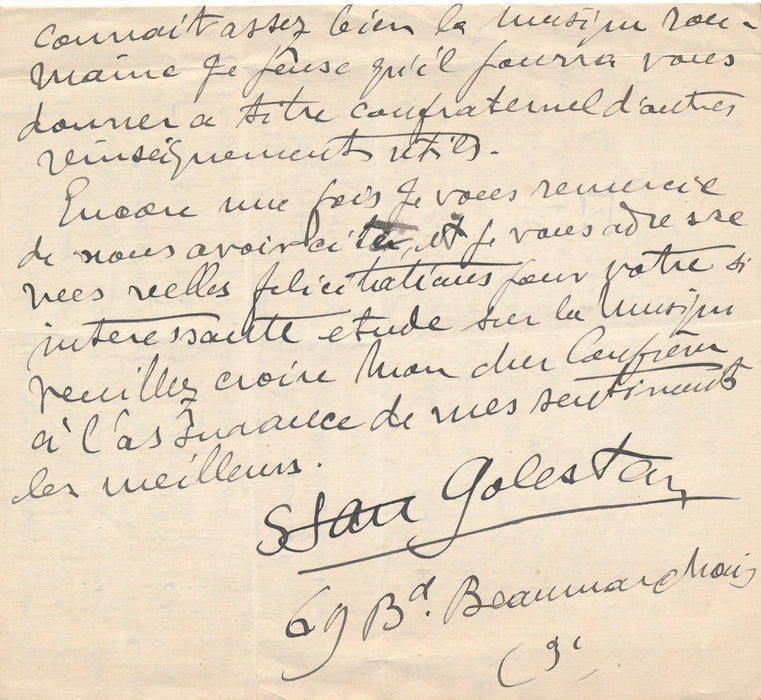 connait assez bien la musique rou-
maine Je pense qu'il pourra vous
donner a titre confraternel d'autres
renseignements utiles.
Encore une fois Je vous remercie
de nous avoir cité, et Je vous adresse
mes réelles felicitations pour votre si
interessante etude sur la Musique
veuillez croire Mon cher Confrère
à l'assurance de mes sentiments
les meilleurs.
Stan Golestan
69 Bd. Beaumarchais